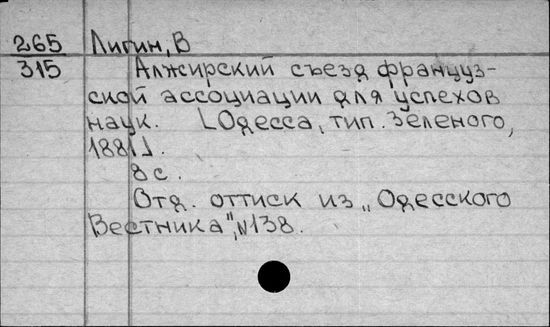 265 Лигин, В
315 Алжирский съезд француз-
ской ассоциации для успехов
наук. [Одесса, тип. Зеленого,
1881].
8 с.
Отд. оттиск из „Одесского
Вестника", №138.